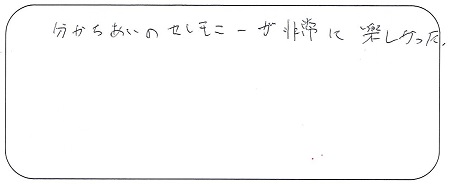 分かちあいのセレモニーが非常に楽しかった。